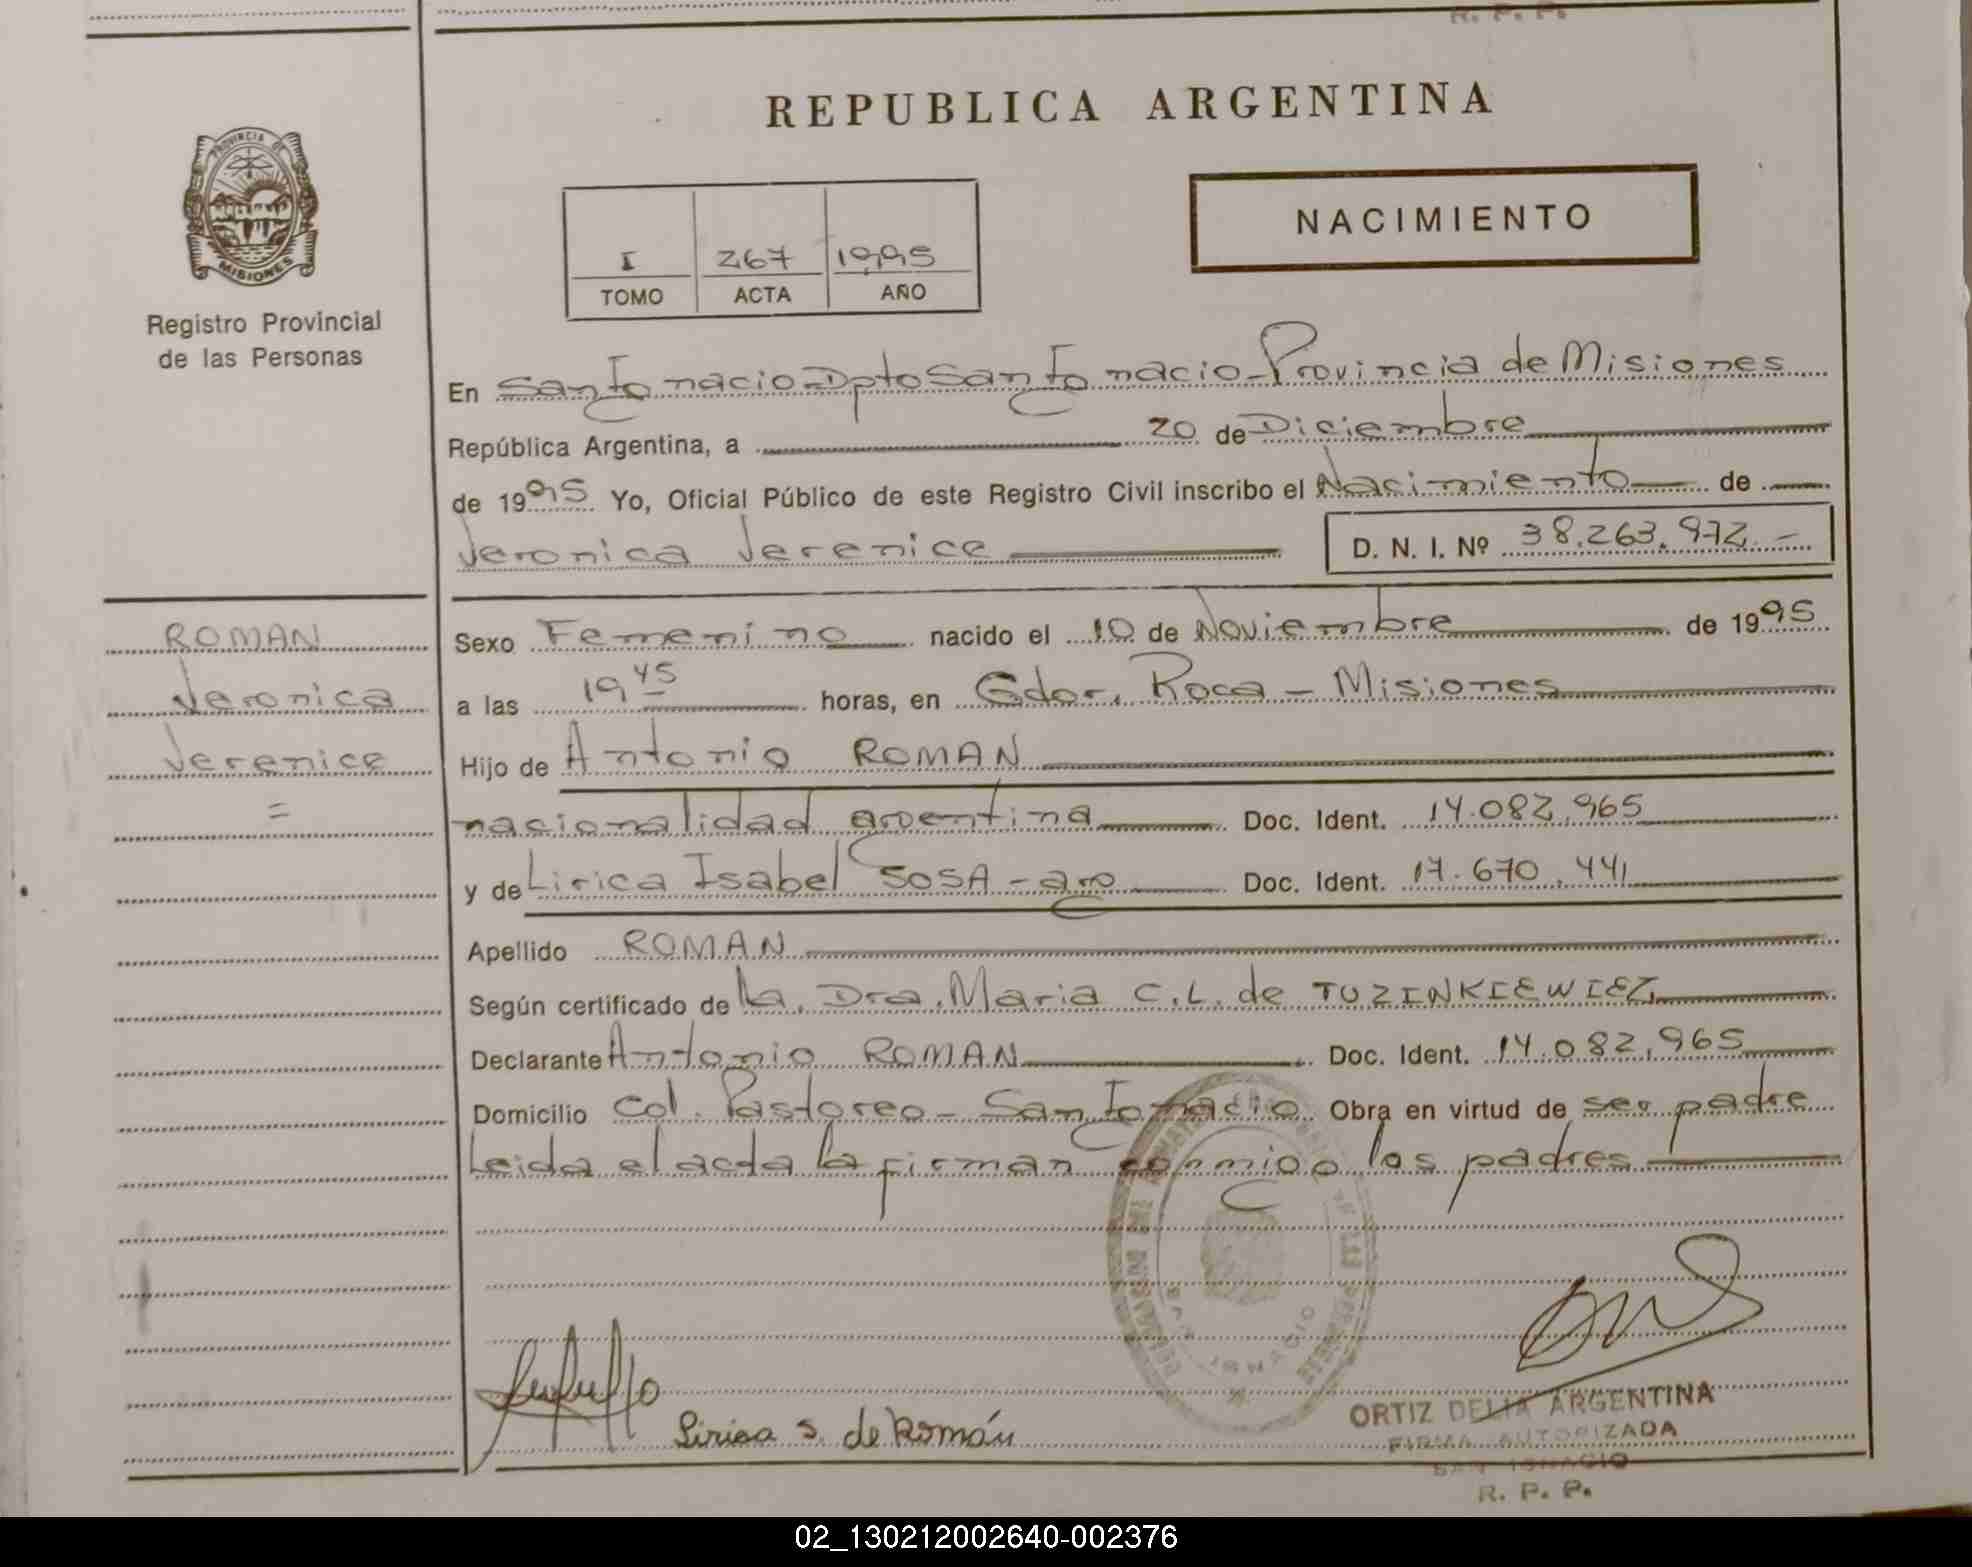 R. P. P.
PROVINCIA DE
MISIONES
Registro Provincial
de las Personas
REPUBLICA ARGENTINA
NACIMIENTO
I 267 1995
TOMO ACTA AÑO
En San Ignacio - Dpto San Ignacio - Provincia de Misiones
República Argentina, a 20 de Diciembre
de 1995 Yo, Oficial Público de este Registro Civil inscribo el Nacimiento de
Veronica Verenice D. N. I. Nº 38.263.972.-
ROMAN
Veronica
Verenice
=
Sexo Femenino nacido el 10 de Noviembre de 1995
a las 19 45 horas, en Gdor. Roca - Misiones
Hijo de Antonio ROMAN
nacionalidad argentina Doc. Ident. 14.082.965
y de Lirica Isabel SOSA - arg Doc. Ident. 17.670.441
Apellido ROMAN
Según certificado de la Dra. Maria C.L. de TUZINKIEWIEZ
Declarante Antonio ROMAN Doc. Ident. 14.082.965
Domicilio Col. Pastoreo - San Ignacio Obra en virtud de ser padre
Leida el acta la firman conmigo los padres
SAN IGNACIO
Lirica S. de Román
ORTIZ DELIA ARGENTINA
FIRMA AUTORIZADA
SAN IGNACIO
R. P. P.
02_130212002640-002376